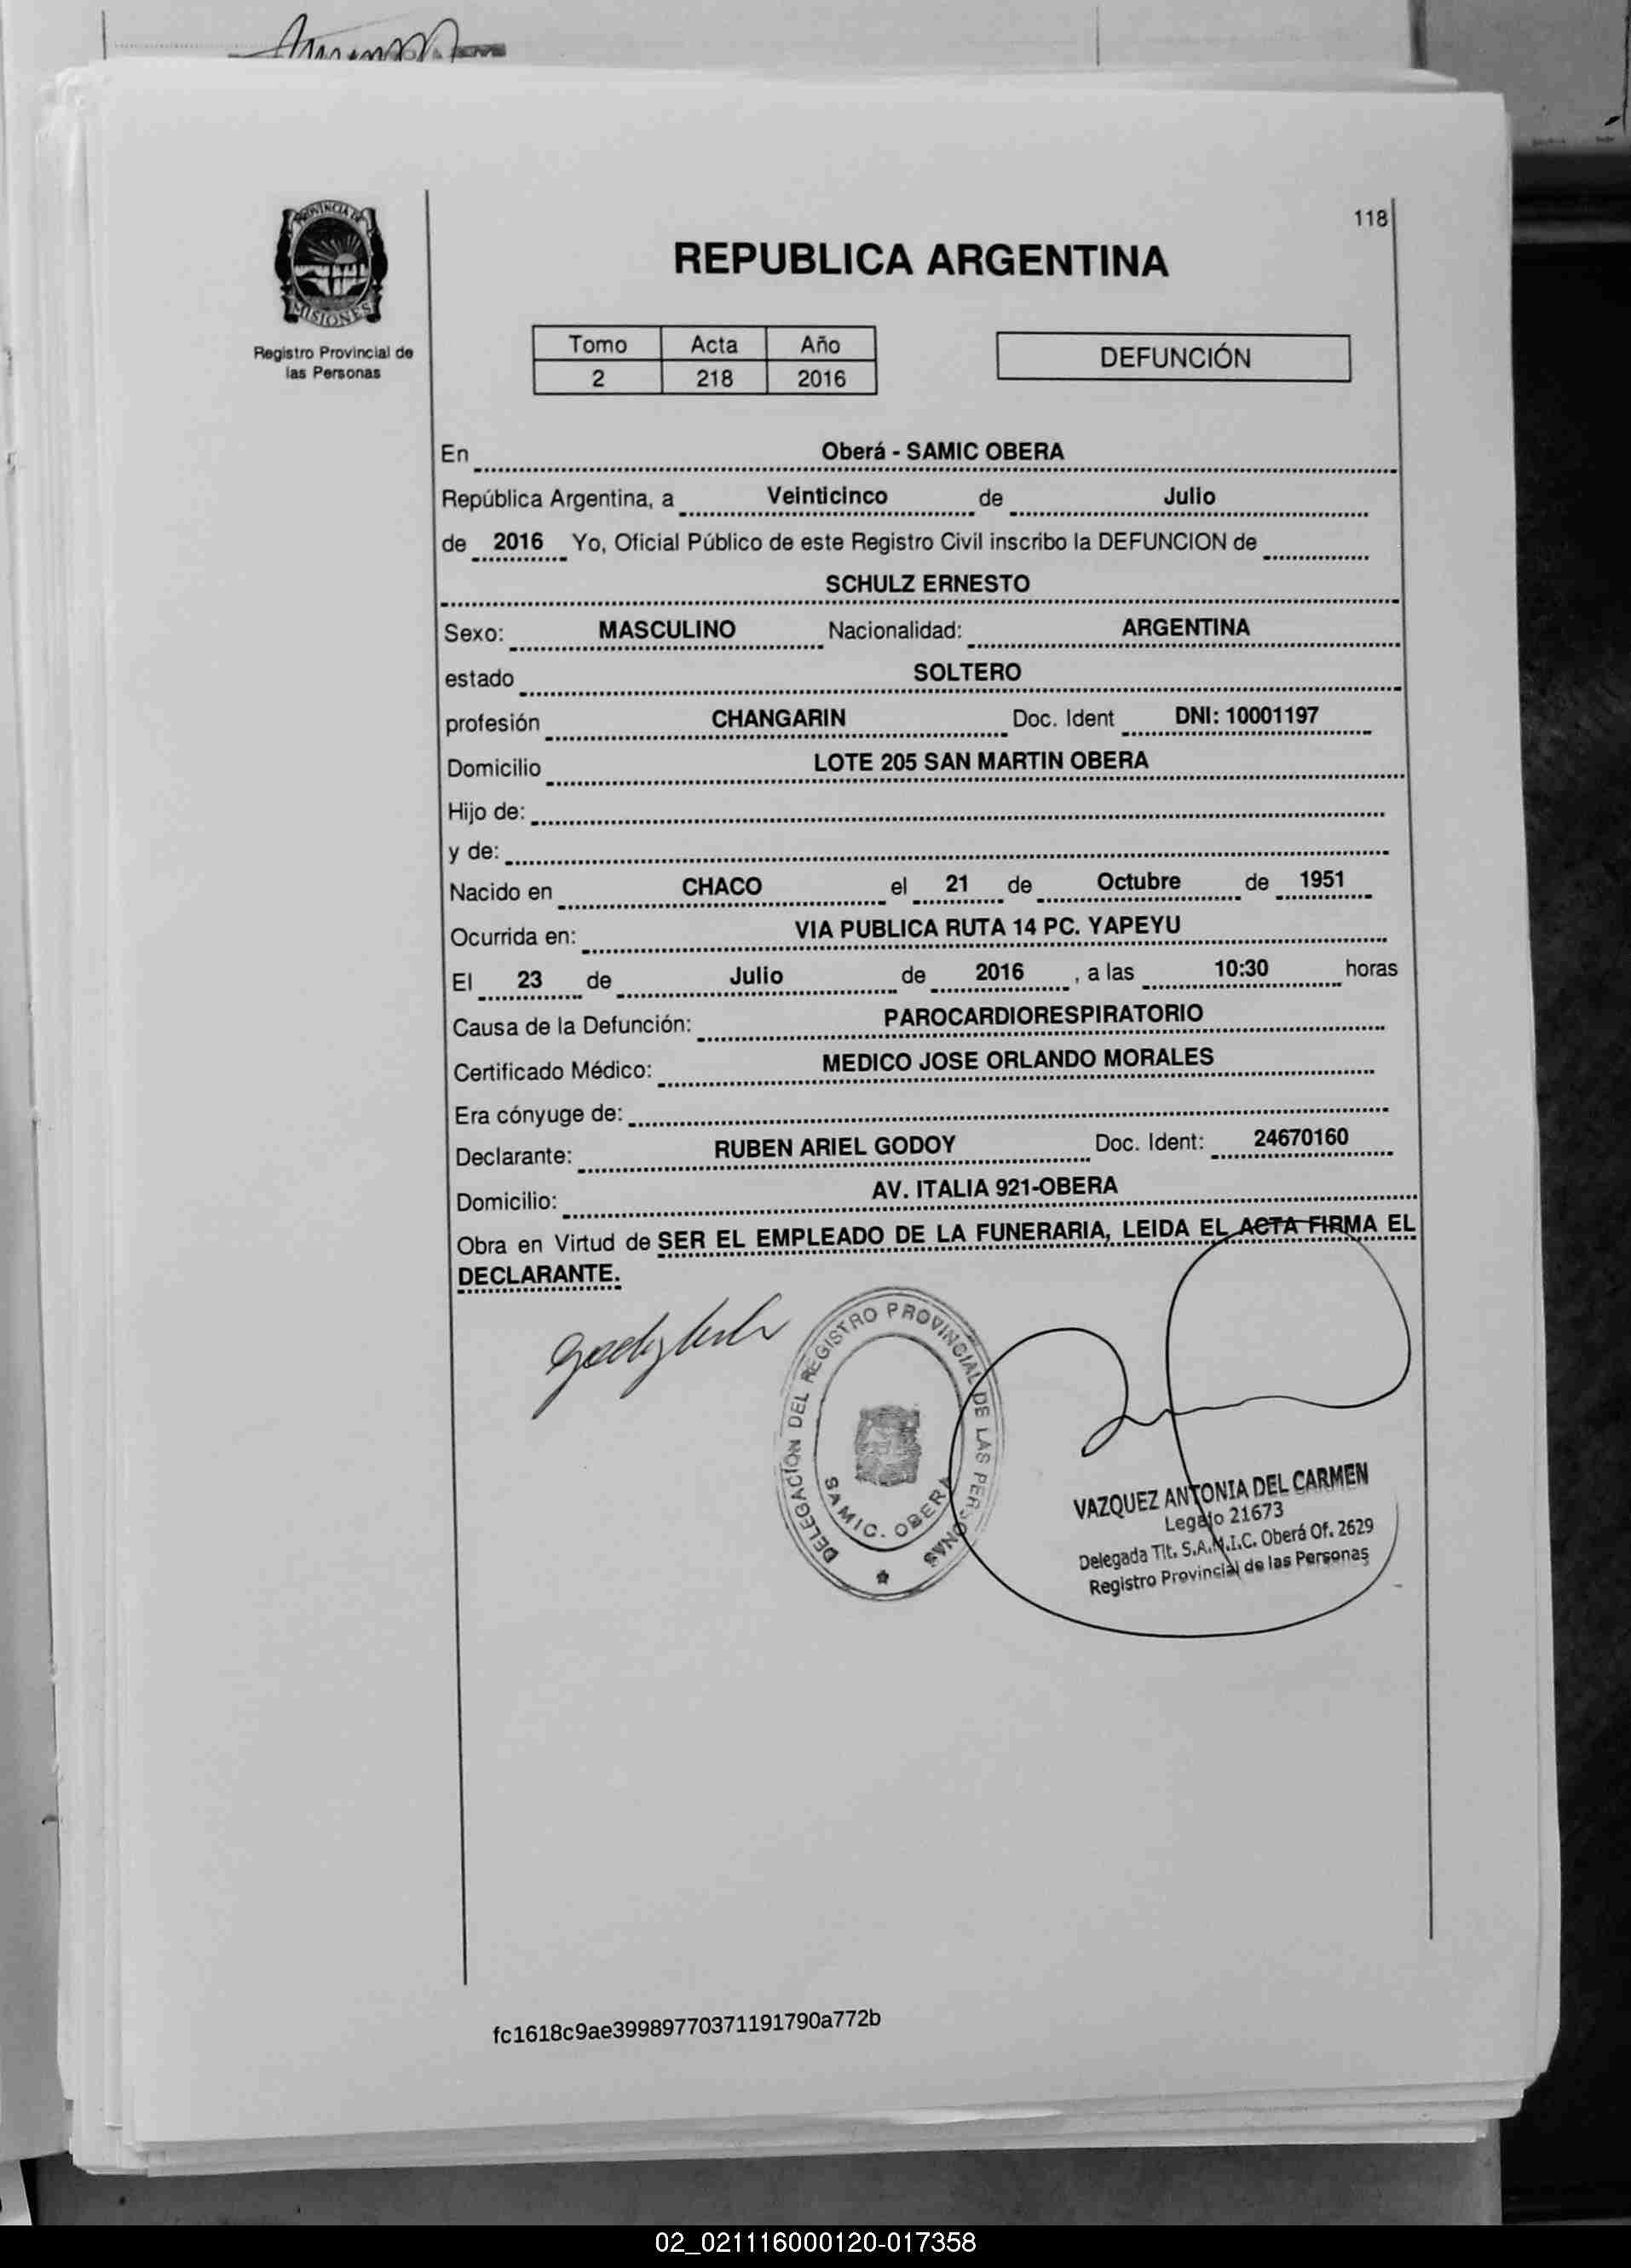 PROVINCIA DE
MISIONES
Registro Provincial de
las Personas
118
REPUBLICA ARGENTINA
Tomo Acta Año
2 218 2016
DEFUNCIÓN
En Oberá - SAMIC OBERA
República Argentina, a Veinticinco de Julio
de 2016 Yo, Oficial Público de este Registro Civil inscribo la DEFUNCION de
SCHULZ ERNESTO
Sexo: MASCULINO Nacionalidad: ARGENTINA
estado SOLTERO
profesión CHANGARIN Doc. Ident DNI: 10001197
Domicilio LOTE 205 SAN MARTIN OBERA
Hijo de:
y de:
Nacido en CHACO el 21 de Octubre de 1951
Ocurrida en: VIA PUBLICA RUTA 14 PC. YAPEYU
El 23 de Julio de 2016 , a las 10:30 horas
Causa de la Defunción: PAROCARDIORESPIRATORIO
Certificado Médico: MEDICO JOSE ORLANDO MORALES
Era cónyuge de:
Declarante: RUBEN ARIEL GODOY Doc. Ident: 24670160
Domicilio: AV. ITALIA 921-OBERA
Obra en Virtud de SER EL EMPLEADO DE LA FUNERARIA, LEIDA EL ACTA FIRMA EL
DECLARANTE.
DELEGACIÓN DEL REGISTRO PROVINCIAL DE LAS PERSONAS
SAMIC. OBERA
VAZQUEZ ANTONIA DEL CARMEN
Legajo 21673
Delegada Tit. S.A.M.I.C. Oberá Of. 2629
Registro Provincial de las Personas
fc1618c9ae39989770371191790a772b
02_021116000120-017358